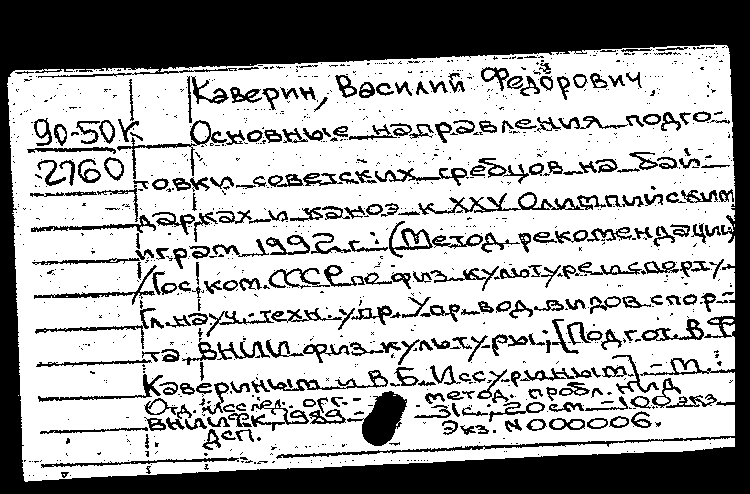 Каверин, Василий Федорович
90-50К
2760
Основные направления подго-
товки советских гребцов на бай-
дарках и каноэ к XXV Олимпийским
играм 1992 г.: (Метод. рекомендации)
/Гос. ком. СССР по физ. культуре и спорту.
Гл. науч.-техн. упр. Упр. вод. видов спор-
та, ВНИИ физ. культуры; [Подгот. В.Ф.
Кавериным и В.Б. Иссуриным] - М.:
Отд. исслед. орг.- метод. пробл. НИД
ВНИИФК, 1989. - 31с.; 20см. - 100 экз.
Дсп. Экз. N000006.